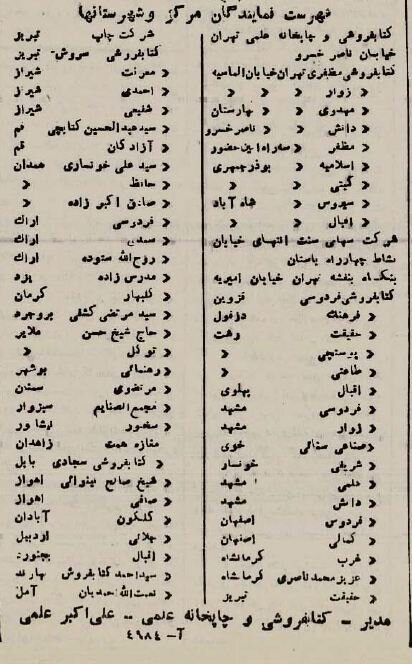 فهرست نمایندگان مرکز وشهرستانها
کتابفروشی و چاپخانه علمی تهران
خیابان ناصر خسرو
کتابفروشی مظفری تهران خیابان الماسیه
« زوار « « «
« مهدوی « « بهارستان
« دانش « « ناصرخسرو
« مظفر « سه‌راه امین حضور
« اسلامیه « بوذرجمهری
« گیتی « «
« سیروس « شاه آباد
« اقبال « «
شرکت سهامی سنت انتهای خیابان
نشاط چهارراه باستان
بنگاه بنفشه تهران خیابان امیریه
کتابفروشی فردوسی قزوین
« فرهنگ دزفول
« حقیقت رشت
« پوستچی «
« طاعتی «
« اقبال پهلوی
« فردوسی مشهد
« زوار مشهد
« صناعی ستاقی خوی
« شریفی خونسار
« علمی مشهد
« دانش مشهد
« فردوس اصفهان
« کمالی اصفهان
« غرب کرمانشاه
« عزیز محمد ناصری کرمانشاه
« حقیقت تبریز
شرکت چاپ تبریز
کتابفروشی سروش تبریز
« معرفت شیراز
« احمدی شیراز
« شفیعی شیراز
« سیدعبدالحسین کتابچی قم
« آزادگان قم
« سید علی خونساری همدان
« حافظ «
« صادق اکبر زاده «
« فردوسی اراک
« سعدی اراک
« روح الله ستوده اراک
« مدرس زاده یزد
« گلبهار کرمان
« سید مرتضی کشفی بروجرد
« حاج شیخ حسن ملایر
« توکل «
« رهنمائی بوشهر
« مرتضوی سمنان
« مجمع الصنایع سبزوار
« سخنور نیشابور
مغازه همت زاهدان
« کتابفروشی سجادی بابل
« شیخ صالح نینوائی اهواز
« صافی اهواز
« گلگون آبادان
« جلالی اردبیل
« اقبال بجنورد
« سیداحمد کتابفروش نهاوند
« نعمت الله احمدیان آمل
مدیر ـ کتابفروشی و چاپخانه علمی ـ علی اکبر علمی
آ ـ ۴۹۸۴